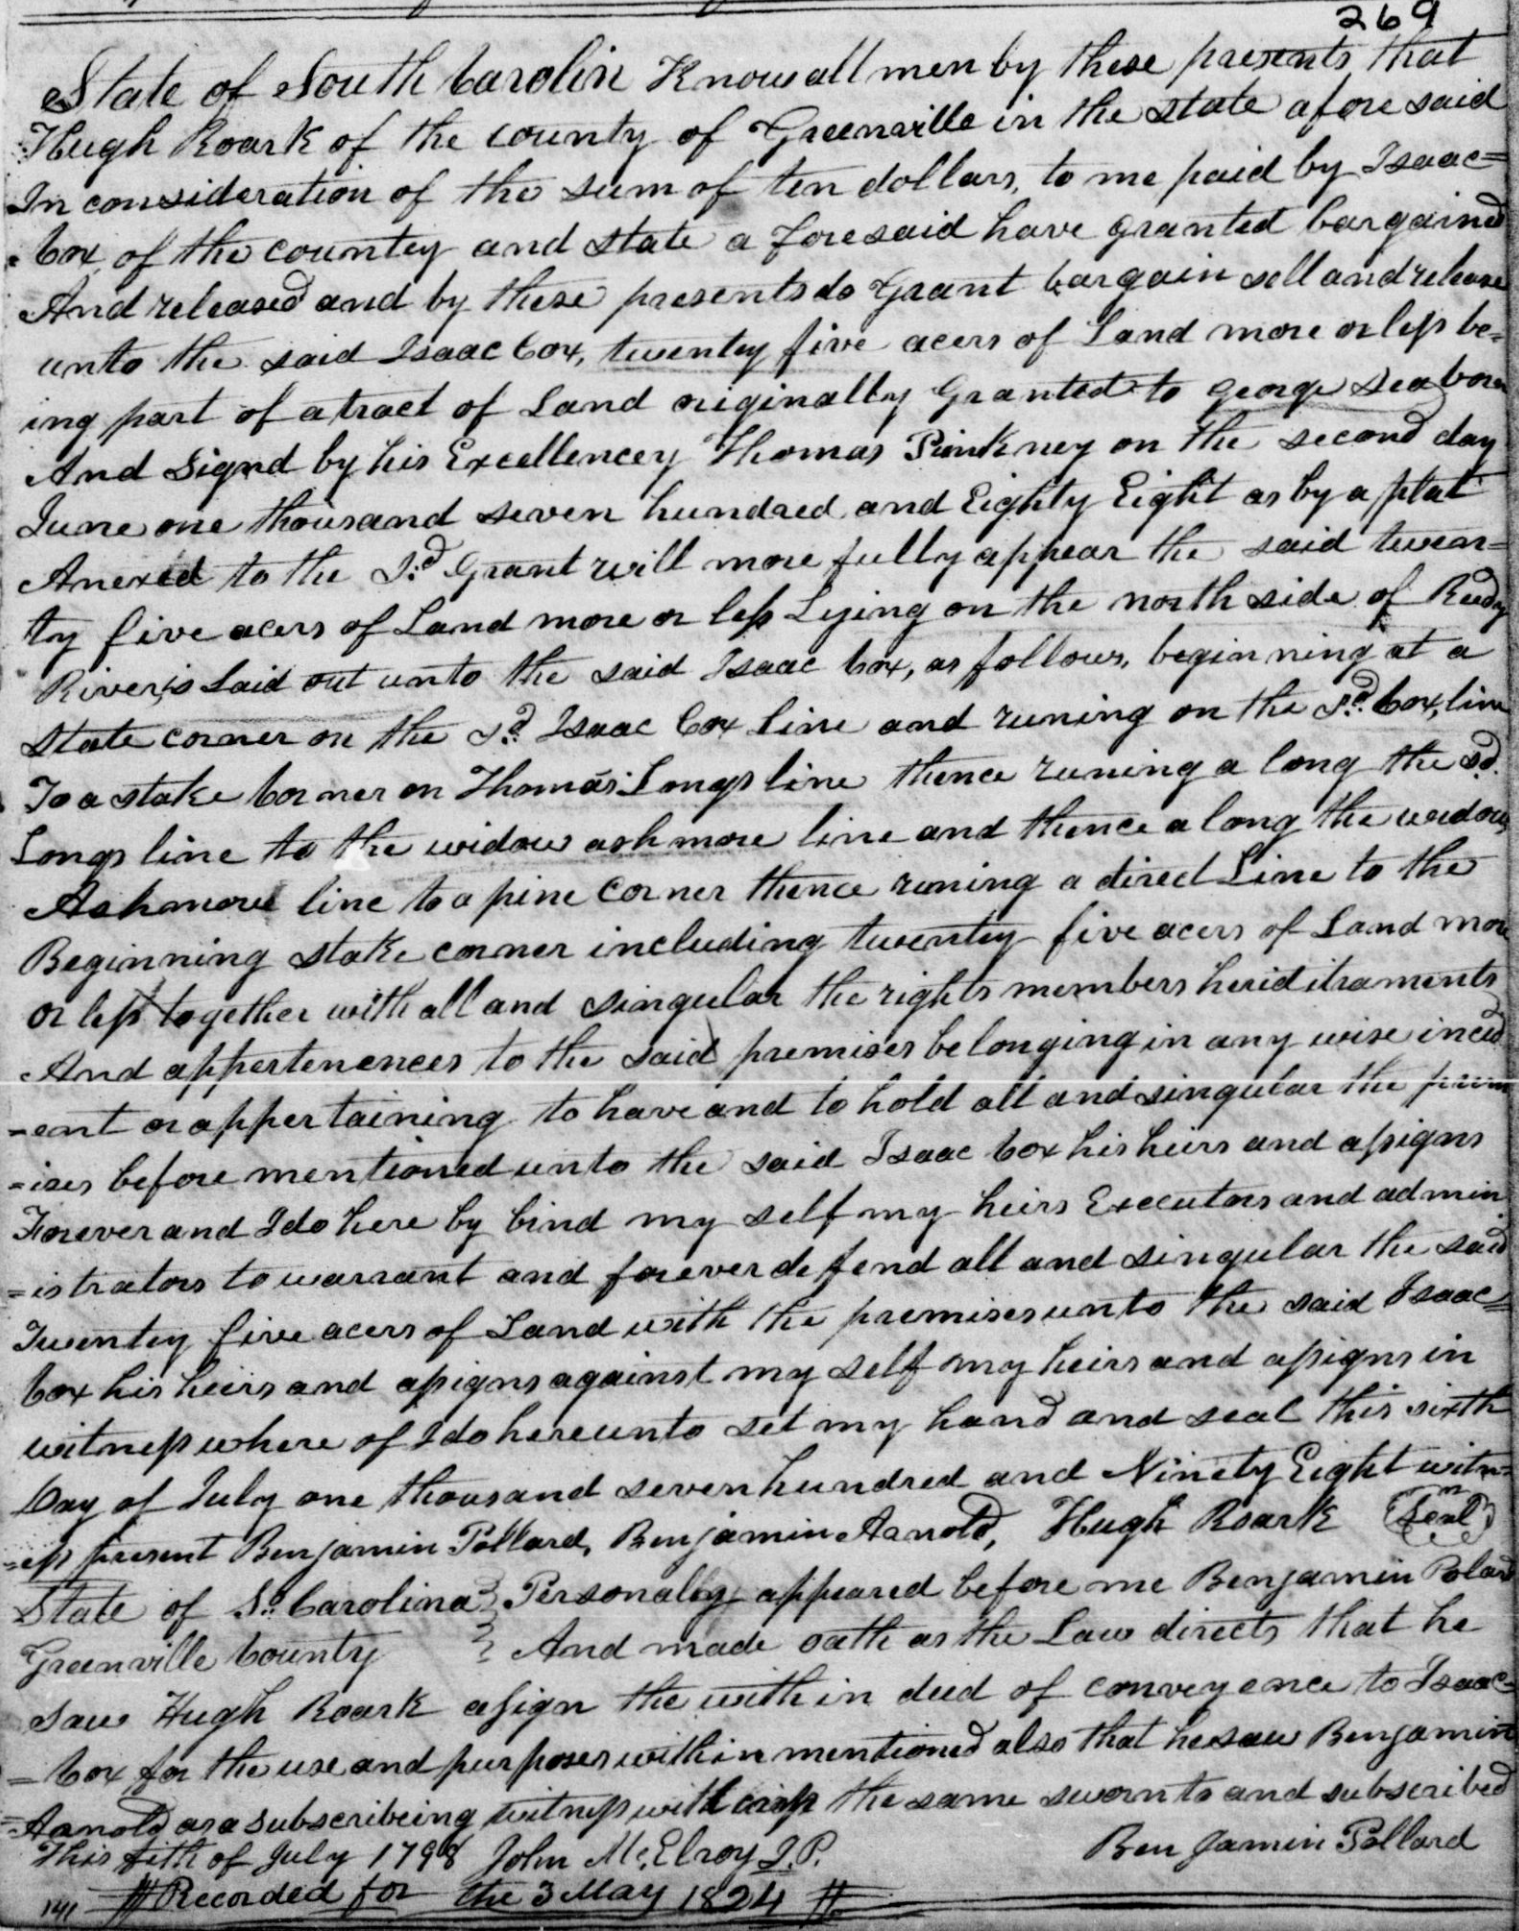 269
State of South Carolin Know all men by these presents that
Hugh Roark of the county of Greenville in the state afore said
In consideration of the sum of ten dollars, to me paid by Isaac=
=Cox, of the countey and state a foresaid have granted bargained
And released and by these presents do Grant bargain sell and release
unto the said Isaac Cox, twentey five acers of Land more or less be=
ing part of a tract of Land originally Granted to george Seaborn
And Signd by his Excellencey Thomas Pinkney on the second day
June one thousand seven hundred and Eighty Eight as by a plat
Anexed to the Sd Grant will more fully appear the said twen=
ty five acers of Land more or less Lying on the north side of Reedy
River is Laid out unto the said Isaac Cox, as follows, beginning at a
State corner on the sd Isaac Cox line and runing on the sd Cox, line
To a stake Corner on Thomas Longs line thence runing a long the sd
Longs line to the widow ashmore line and thence a long the widow
Ashmore line to a pine Corner thence runing a direct Line to the
Beginning stake corner including twentey five acers of Land more
or less together with all and singular the rights members heriditraments
And appertenences to the said premises belonging in any wise incid
=ent or appertaining to have and to hold all and singular the prem
=ises before mentioned unto the said Isaac Cox his heirs and assigns
Forever and I do here by bind my self my heirs Executors and admin
=istrators to warrant and forever defend all and singular the said
Twentey five acers of Land with the premises unto the said Isaac=
Cox his heirs and assigns against my self my heirs and assigns in
witness where of I do hereunto set my hand and seal this sixth
Day of July one thousand seven hundred and Ninety Eight witn=
=ess present Benjamin Pollard, Benjamin Arnold, Hugh Roark Seal
State of So. Carolina } Personally appeared before me Benjamin Polard
Greenville County } And made oath as the Law directs that he
saw Hugh Roark asign the with in deed of conveyence to Isaac=
=Cox for the use and purposes within mentioned also that he saw Benjamin
=Arnold as a subscribeing witness with the same sworn to and subscribed
This of July 1798 John McElroy J.P. Benjamin Pollard
Recorded for the 3 May 1824